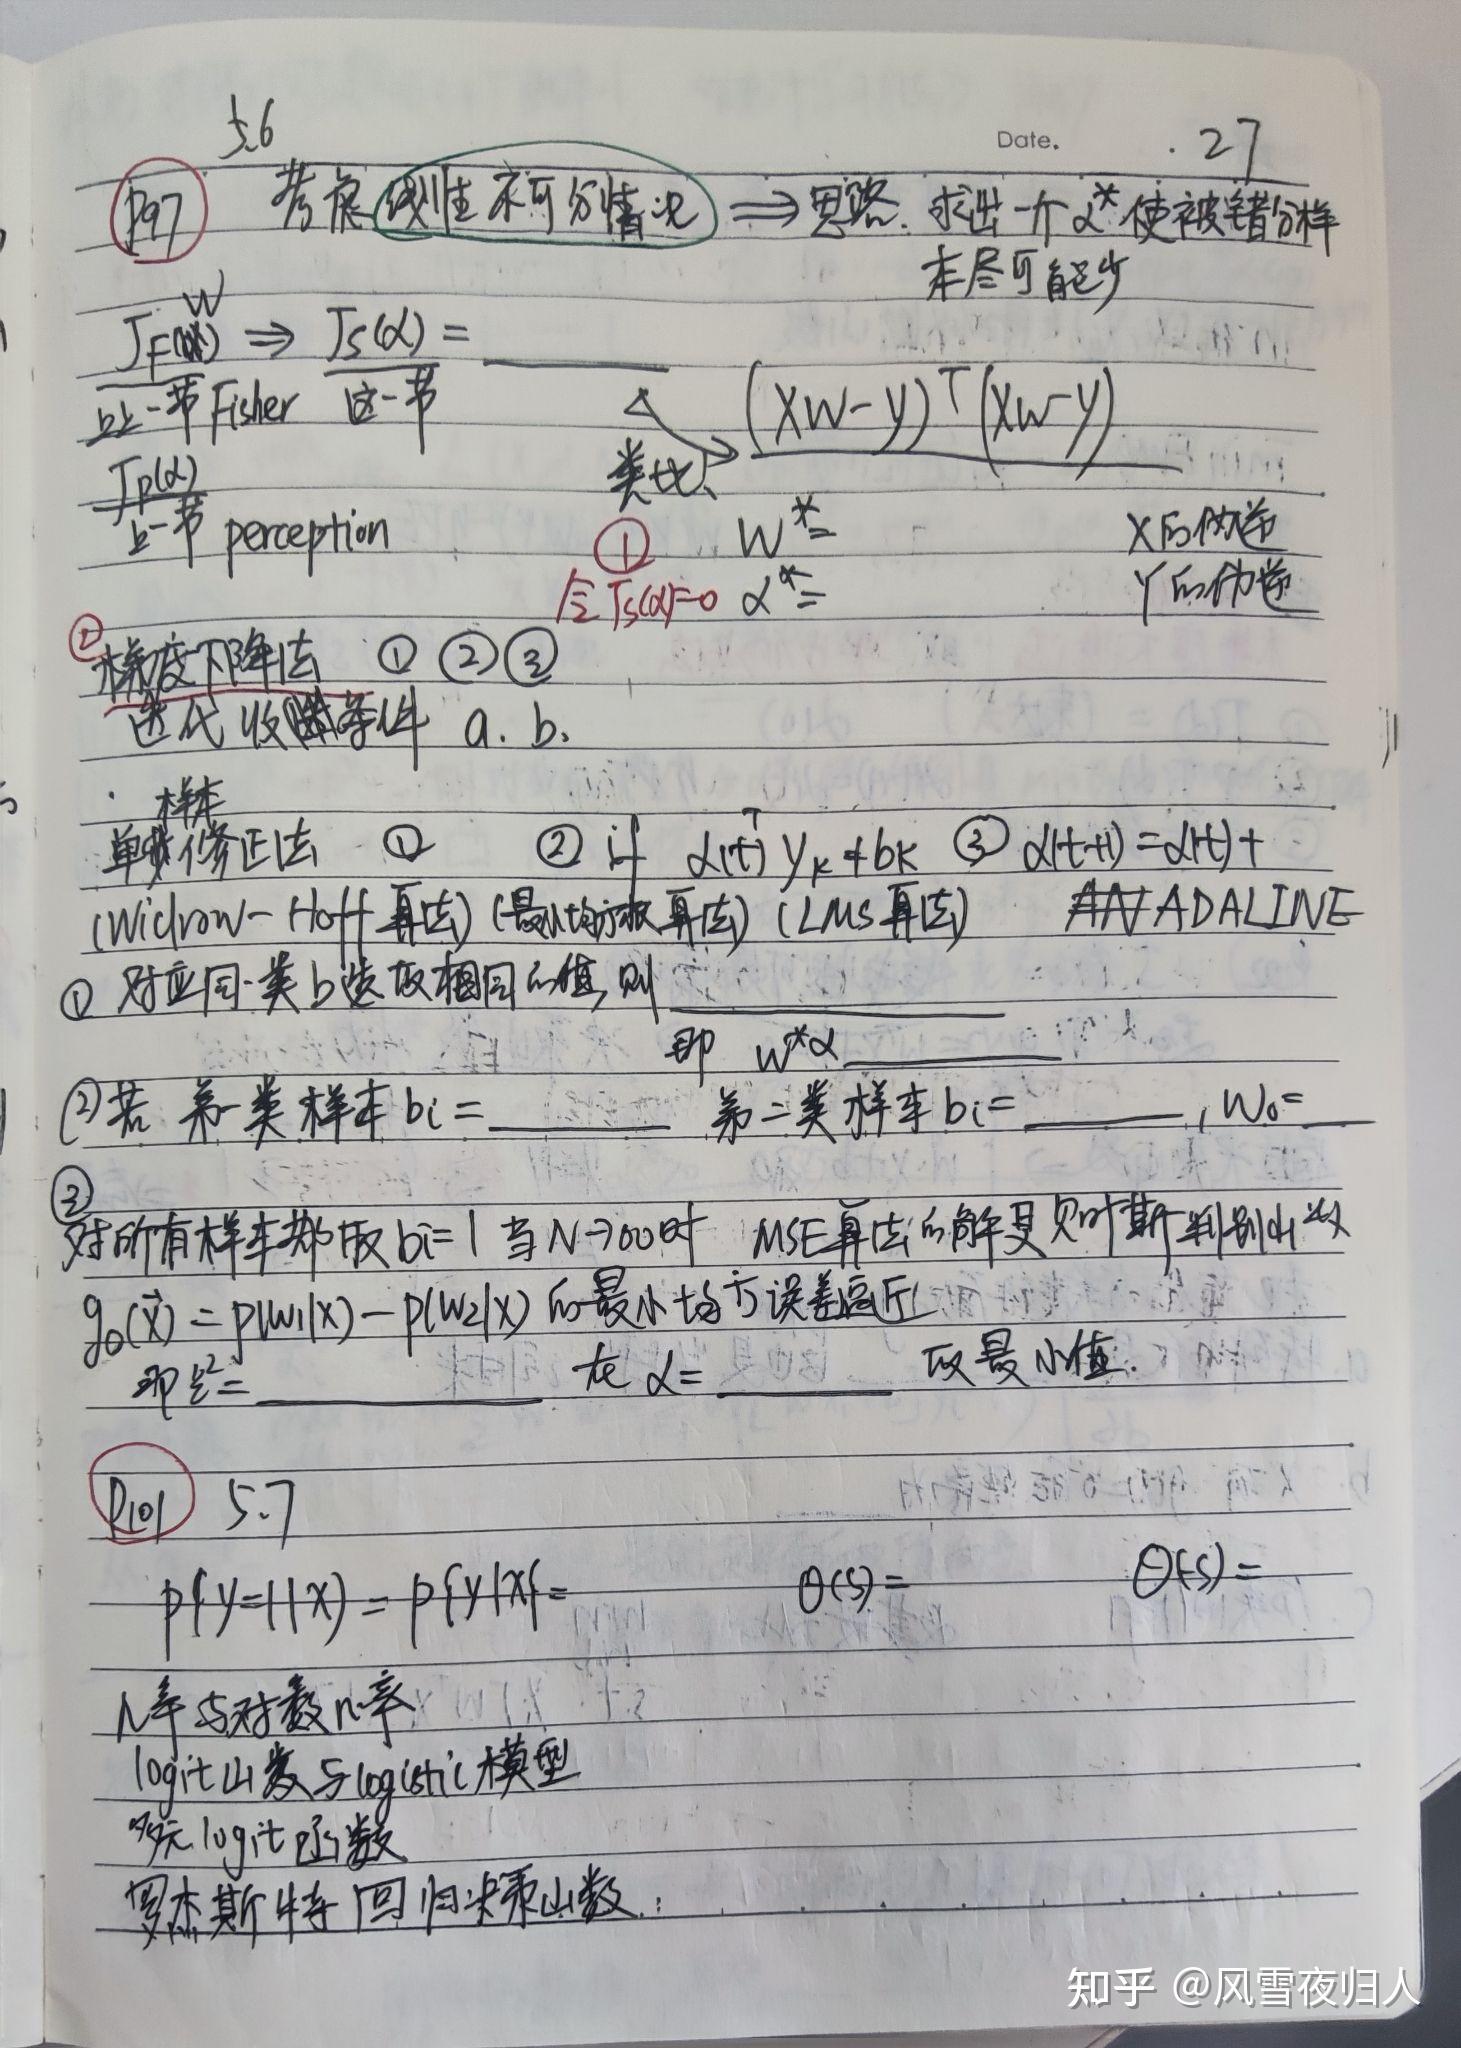 5.6
Date. .27
P97 考虑线性不可分情况 ⇒ 思路. 求出一个α* 使被错分样
本尽可能少
W
J_F(α) ⇒ J_S(α) = ______
上上一节 Fisher 这一节
(XW-y)^T(XW-y)
J_P(α) 类比
上一节 perception
① W*= X的伪逆
令J_S(α)=0 α*= Y的伪逆
② 梯度下降法 ① ② ③
迭代收敛条件 a. b.
样本
单步修正法 ① ② if α(t)^T y_k ≠ b_k ③ α(t+1) = α(t) +
(Widrow-Hoff算法) (最小均方根算法) (LMS算法) ADALINE
① 对应同一类b选取相同的值, 则 ______
即 W*∝ ______
② 若 第一类样本 bi = ______ 第二类样本 bi = ______ , W₀ = ___
③
对所有样本都取 bi=1 当N→∞时 MSE算法的解是贝叶斯判别函数
g₀(x⃗) = p(w₁|x) - p(w₂|x) 的最小均方误差逼近
即 ε²= ______ 在 α= ______ 取最小值.
P101 5.7
p{y=1|x) = p{y|x{= θ(s) = θ(-s) =
几率与对数几率
logit函数与logistic模型
多元logit函数
罗杰斯特回归决策函数:
知乎 @风雪夜归人